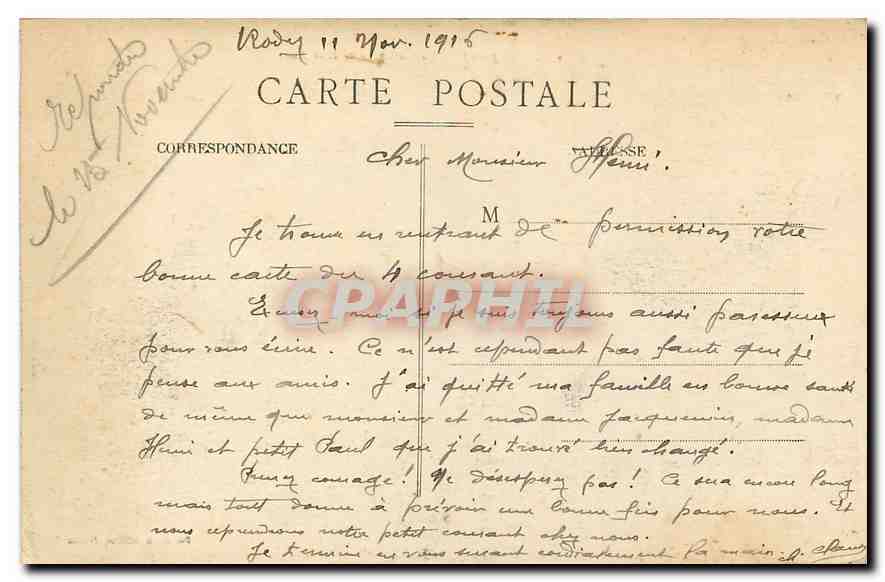 11 Nov. 1915
Répondu
le 15 Novembre
CARTE POSTALE
CORRESPONDANCE
Cher Monsieur Henri.
M
Je trouve en rentrant de permission votre
bonne carte du 4 courant.
CPAPHIL
Excusez moi si je suis toujours aussi paresseux
pour vous écrire. Ce n'est cependant pas faute que je
pense aux amis. J'ai quitté ma famille en bonne santé
de même que monsieur et madame Jacquemin, madame
Henri et petit Paul que j'ai trouvé bien changé.
Prenez courage! Ne désesperez pas! Ce sera encore long
mais tout donne à prévoir une bonne fin pour nous. Et
nous reprendrons notre petit courant chez nous.
Je termine en vous serrant cordialement la main.